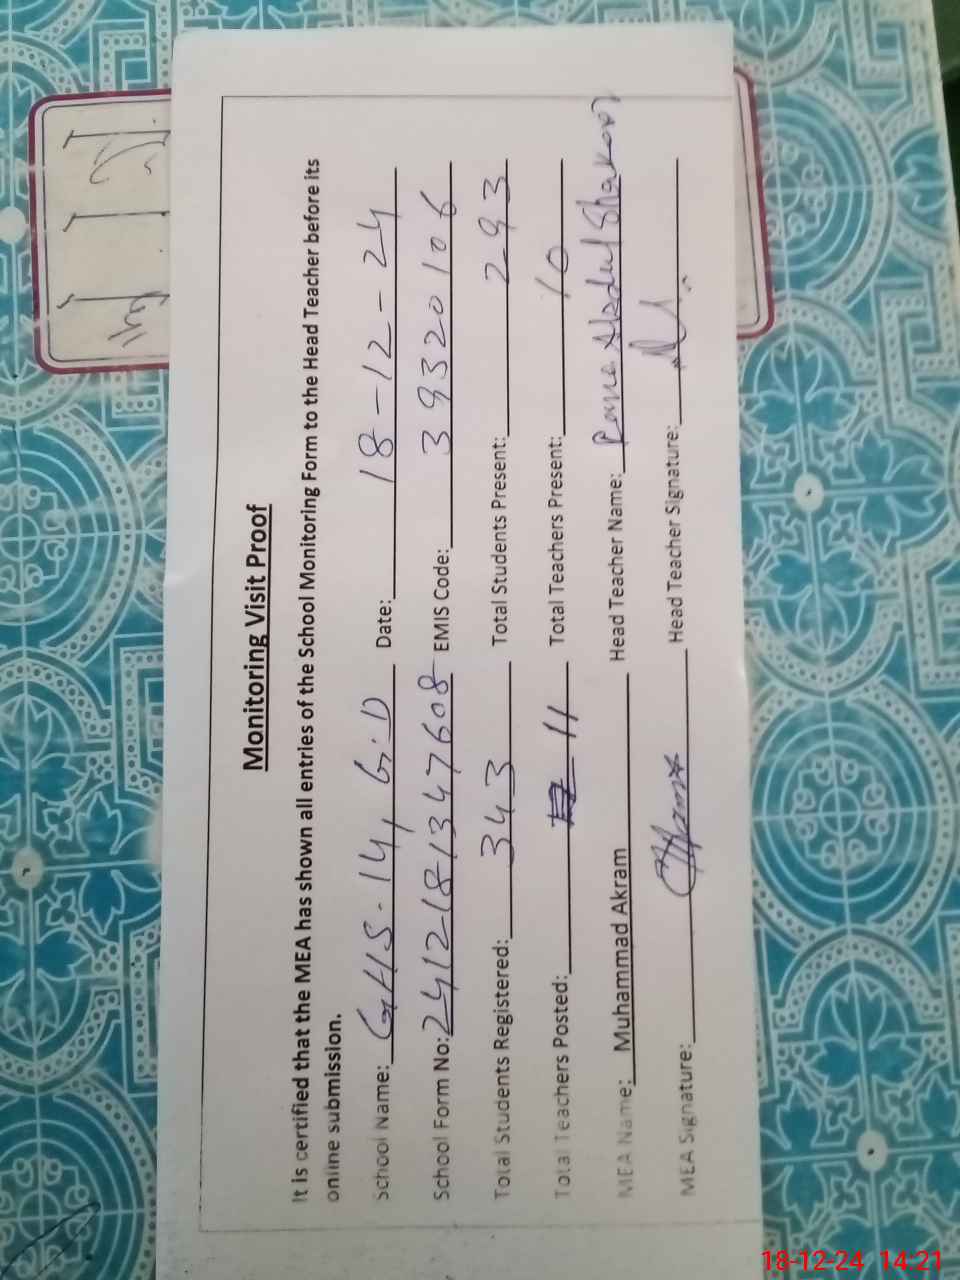 Monitoring Visit Proof
It is certified that the MEA has shown all entries of the School Monitoring Form to the Head Teacher before its
online submission.
School Name: GHS-14, G.D Date: 18-12-24
School Form No: 2412181347608 EMIS Code: 39320106
Total Students Registered: 343 Total Students Present: 293
Total Teachers Posted: 11 Total Teachers Present: 10
MEA Name: Muhammad Akram Head Teacher Name: Rana Abdul Shakoor
MEA Signature: Head Teacher Signature:
18-12-24 14:21